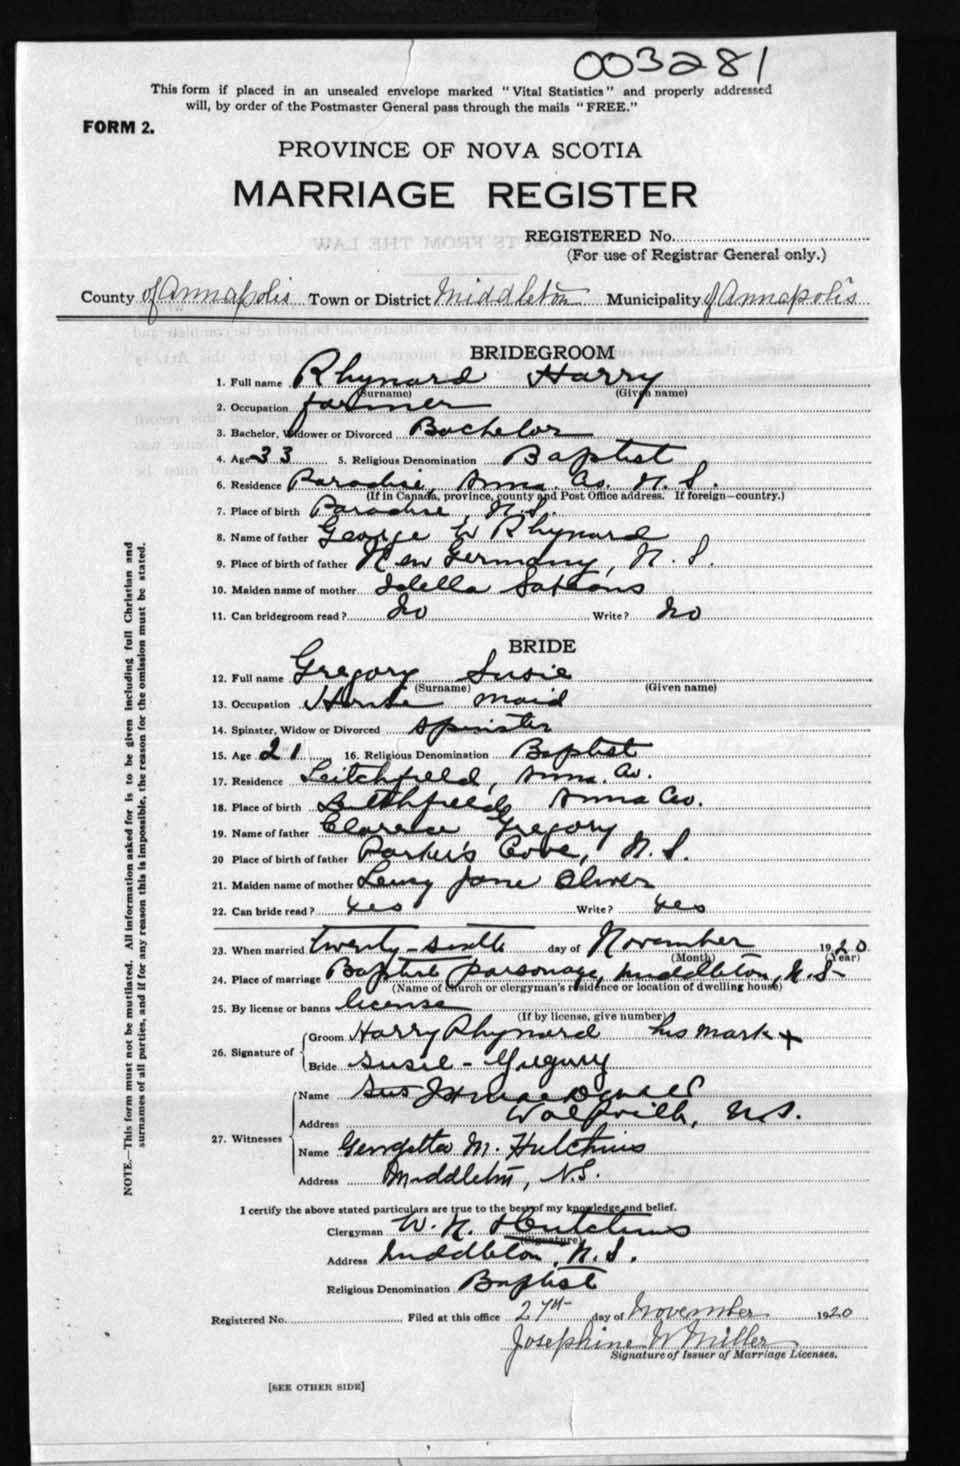 003281
This form if placed in an unsealed envelope marked "Vital Statistics" and properly addressed
will, by order of the Postmaster General pass through the mails "FREE."
FORM 2.
PROVINCE OF NOVA SCOTIA
MARRIAGE REGISTER
REGISTERED No.
(For use of Registrar General only.)
County of Annapolis Town or District Middleton Municipality of Annapolis
BRIDEGROOM
1. Full name Rhynard Harry
(Surname) (Given name)
2. Occupation farmer
3. Bachelor, Widower or Divorced Bachelor
4. Age 33 5. Religious Denomination Baptist
6. Residence Paradise, Anna. Co. N. S.
(If in Canada, province, county and Post Office address. If foreign—country.)
7. Place of birth Paradise, N.S.
8. Name of father George W Rhynard
9. Place of birth of father New Germany, N. S.
10. Maiden name of mother Idella
11. Can bridegroom read? No Write? No
BRIDE
12. Full name Gregory Susie
(Surname) (Given name)
13. Occupation House maid
14. Spinster, Widow or Divorced Spinster
15. Age 21 16. Religious Denomination Baptist
17. Residence Leitchfield, Anna. Co.
18. Place of birth Litchfield Anna Co.
19. Name of father Clarence Gregory
20 Place of birth of father Parker's Cove, N. S.
21. Maiden name of mother Jane Oliver
22. Can bride read? Yes Write? Yes
23. When married twenty-sixth day of November 1920
(Month) (Year)
24. Place of marriage Baptist parsonage, Middleton, N. S-
(Name of church or clergyman's residence or location of dwelling house)
25. By license or banns license
(If by license, give number)
26. Signature of Groom Harry Rhynard his mark +
Bride Susie - Gregory
27. Witnesses Name
Address Wolfville, N.S.
Name Georgetta M. Hutchins
Address Middleton, N.S.
I certify the above stated particulars are true to the best of my knowledge and belief.
Clergyman W. N. Hutchins
(Signature)
Address Middleton, N. S.
Religious Denomination Baptist
Registered No. Filed at this office 27th day of November 1920
Josephine W Miller
Signature of Issuer of Marriage Licenses.
[SEE OTHER SIDE]
NOTE.—This form must not be mutilated. All information asked for is to be given including full Christian and
surnames of all parties, and if for any reason this is impossible, the reason for the omission must be stated.